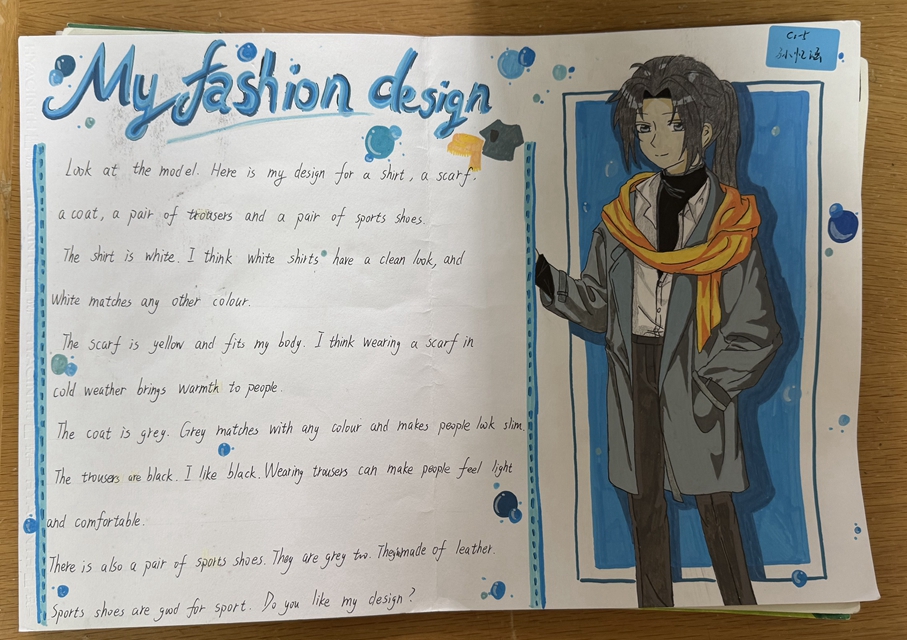 My fashion design
C1-5
Look at the model. Here is my design for a shirt, a scarf,
a coat, a pair of trousers and a pair of sports shoes.
The shirt is white. I think white shirts have a clean look, and
white matches any other colour.
The scarf is yellow and fits my body. I think wearing a scarf in
cold weather brings warmth to people.
The coat is grey. Grey matches with any colour and makes people look slim.
The trousers are black. I like black. Wearing trousers can make people feel light
and comfortable.
There is also a pair of sports shoes. They are grey too. made of leather.
Sports shoes are good for sport. Do you like my design?